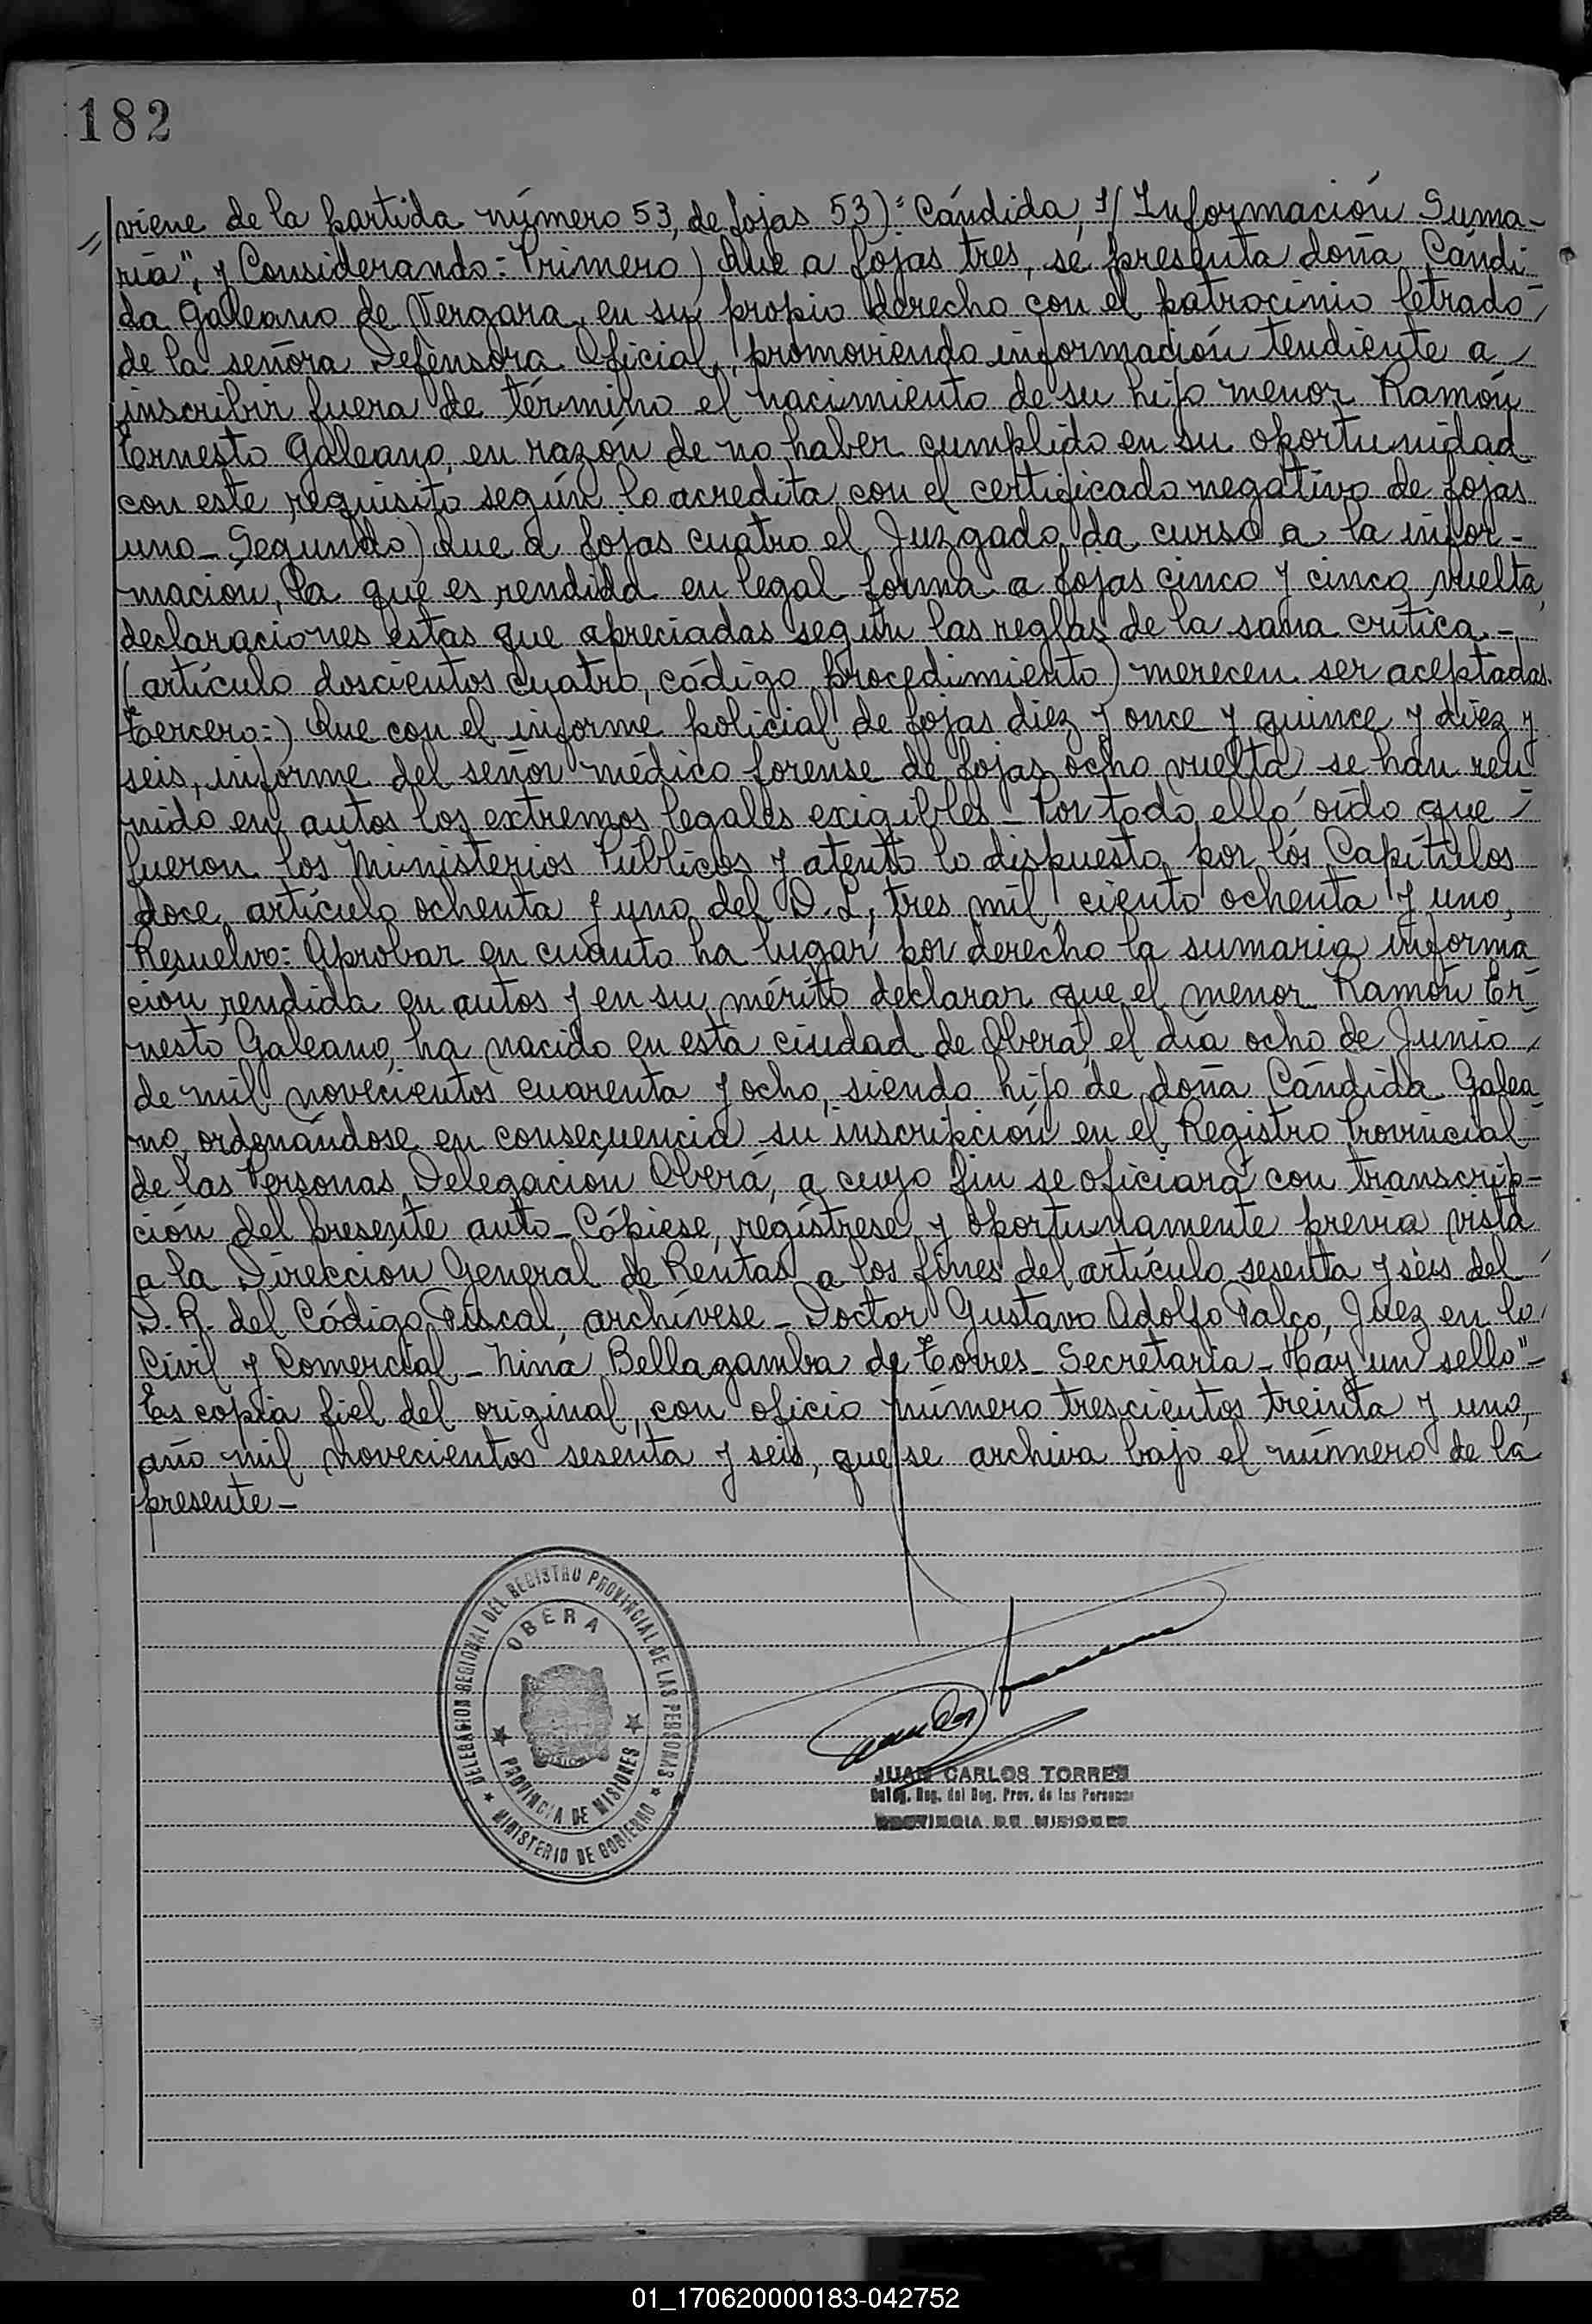 182
viene de la partida número 53, de fojas 53): Cándida, s/ Información Suma-
ria", y Considerando: Primero) Que a fojas tres, se presenta doña Cándi-
da Galeano de Vergara, en su propio derecho con el patrocinio letrado
de la señora Defensora Oficial, promoviendo información tendiente a
inscribir fuera de término el nacimiento de su hijo menor Ramón
Ernesto Galeano, en razón de no haber cumplido en su oportunidad
con este requisito según lo acredita con el certificado negativo de fojas
uno - Segundo) Que a fojas cuatro el Juzgado da curso a la infor-
mación, la que es rendida en legal forma a fojas cinco y cinco vuelta,
declaraciones estas que apreciadas según las reglas de la sana crítica -
(artículo doscientos cuatro, código procedimiento) merecen ser aceptadas.
Tercero:) Que con el informe policial de fojas diez y once y quince y diez y
seis, informe del señor médico forense de fojas ocho vuelta se han reu-
nido en autos los extremos legales exigibles - Por todo ello oído que
fueron los Ministerios Públicos y atento lo dispuesto por los Capítulos
doce, artículo ochenta y uno del D.L, tres mil ciento ochenta y uno,
Resuelvo: Aprobar en cuanto ha lugar por derecho la sumaria informa
ción rendida en autos y en su mérito declarar que el menor Ramón Er-
nesto Galeano, ha nacido en esta ciudad de Oberá, el día ocho de Junio
de mil novecientos cuarenta y ocho, siendo hijo de doña Cándida Galea-
no, ordenándose en consecuencia su inscripción en el Registro Provincial
de las Personas, Delegación Oberá, a cuyo fin se oficiará con transcrip-
ción del presente auto - Cópiese, regístrese y oportunamente previa vista
a la Dirección General de Rentas a los fines del artículo sesenta y seis del
D. R. del Código Fiscal, archívese - Doctor Gustavo Adolfo Palco, Juez en lo
Civil y Comercial - Nina Bellagamba de Torres - Secretaria - Hay un sello"-
Es copia fiel del original, con oficio número trescientos treinta y uno,
año mil novecientos sesenta y seis, que se archiva bajo el número de la
presente -
DELEGACION REGIONAL DEL REGISTRO PROVINCIAL DE LAS PERSONAS
OBERA
PROVINCIA DE MISIONES
MINISTERIO DE GOBIERNO
JUAN CARLOS TORRES
Deleg. Reg. del Reg. Prov. de las Personas
PROVINCIA DE MISIONES
01_170620000183-042752